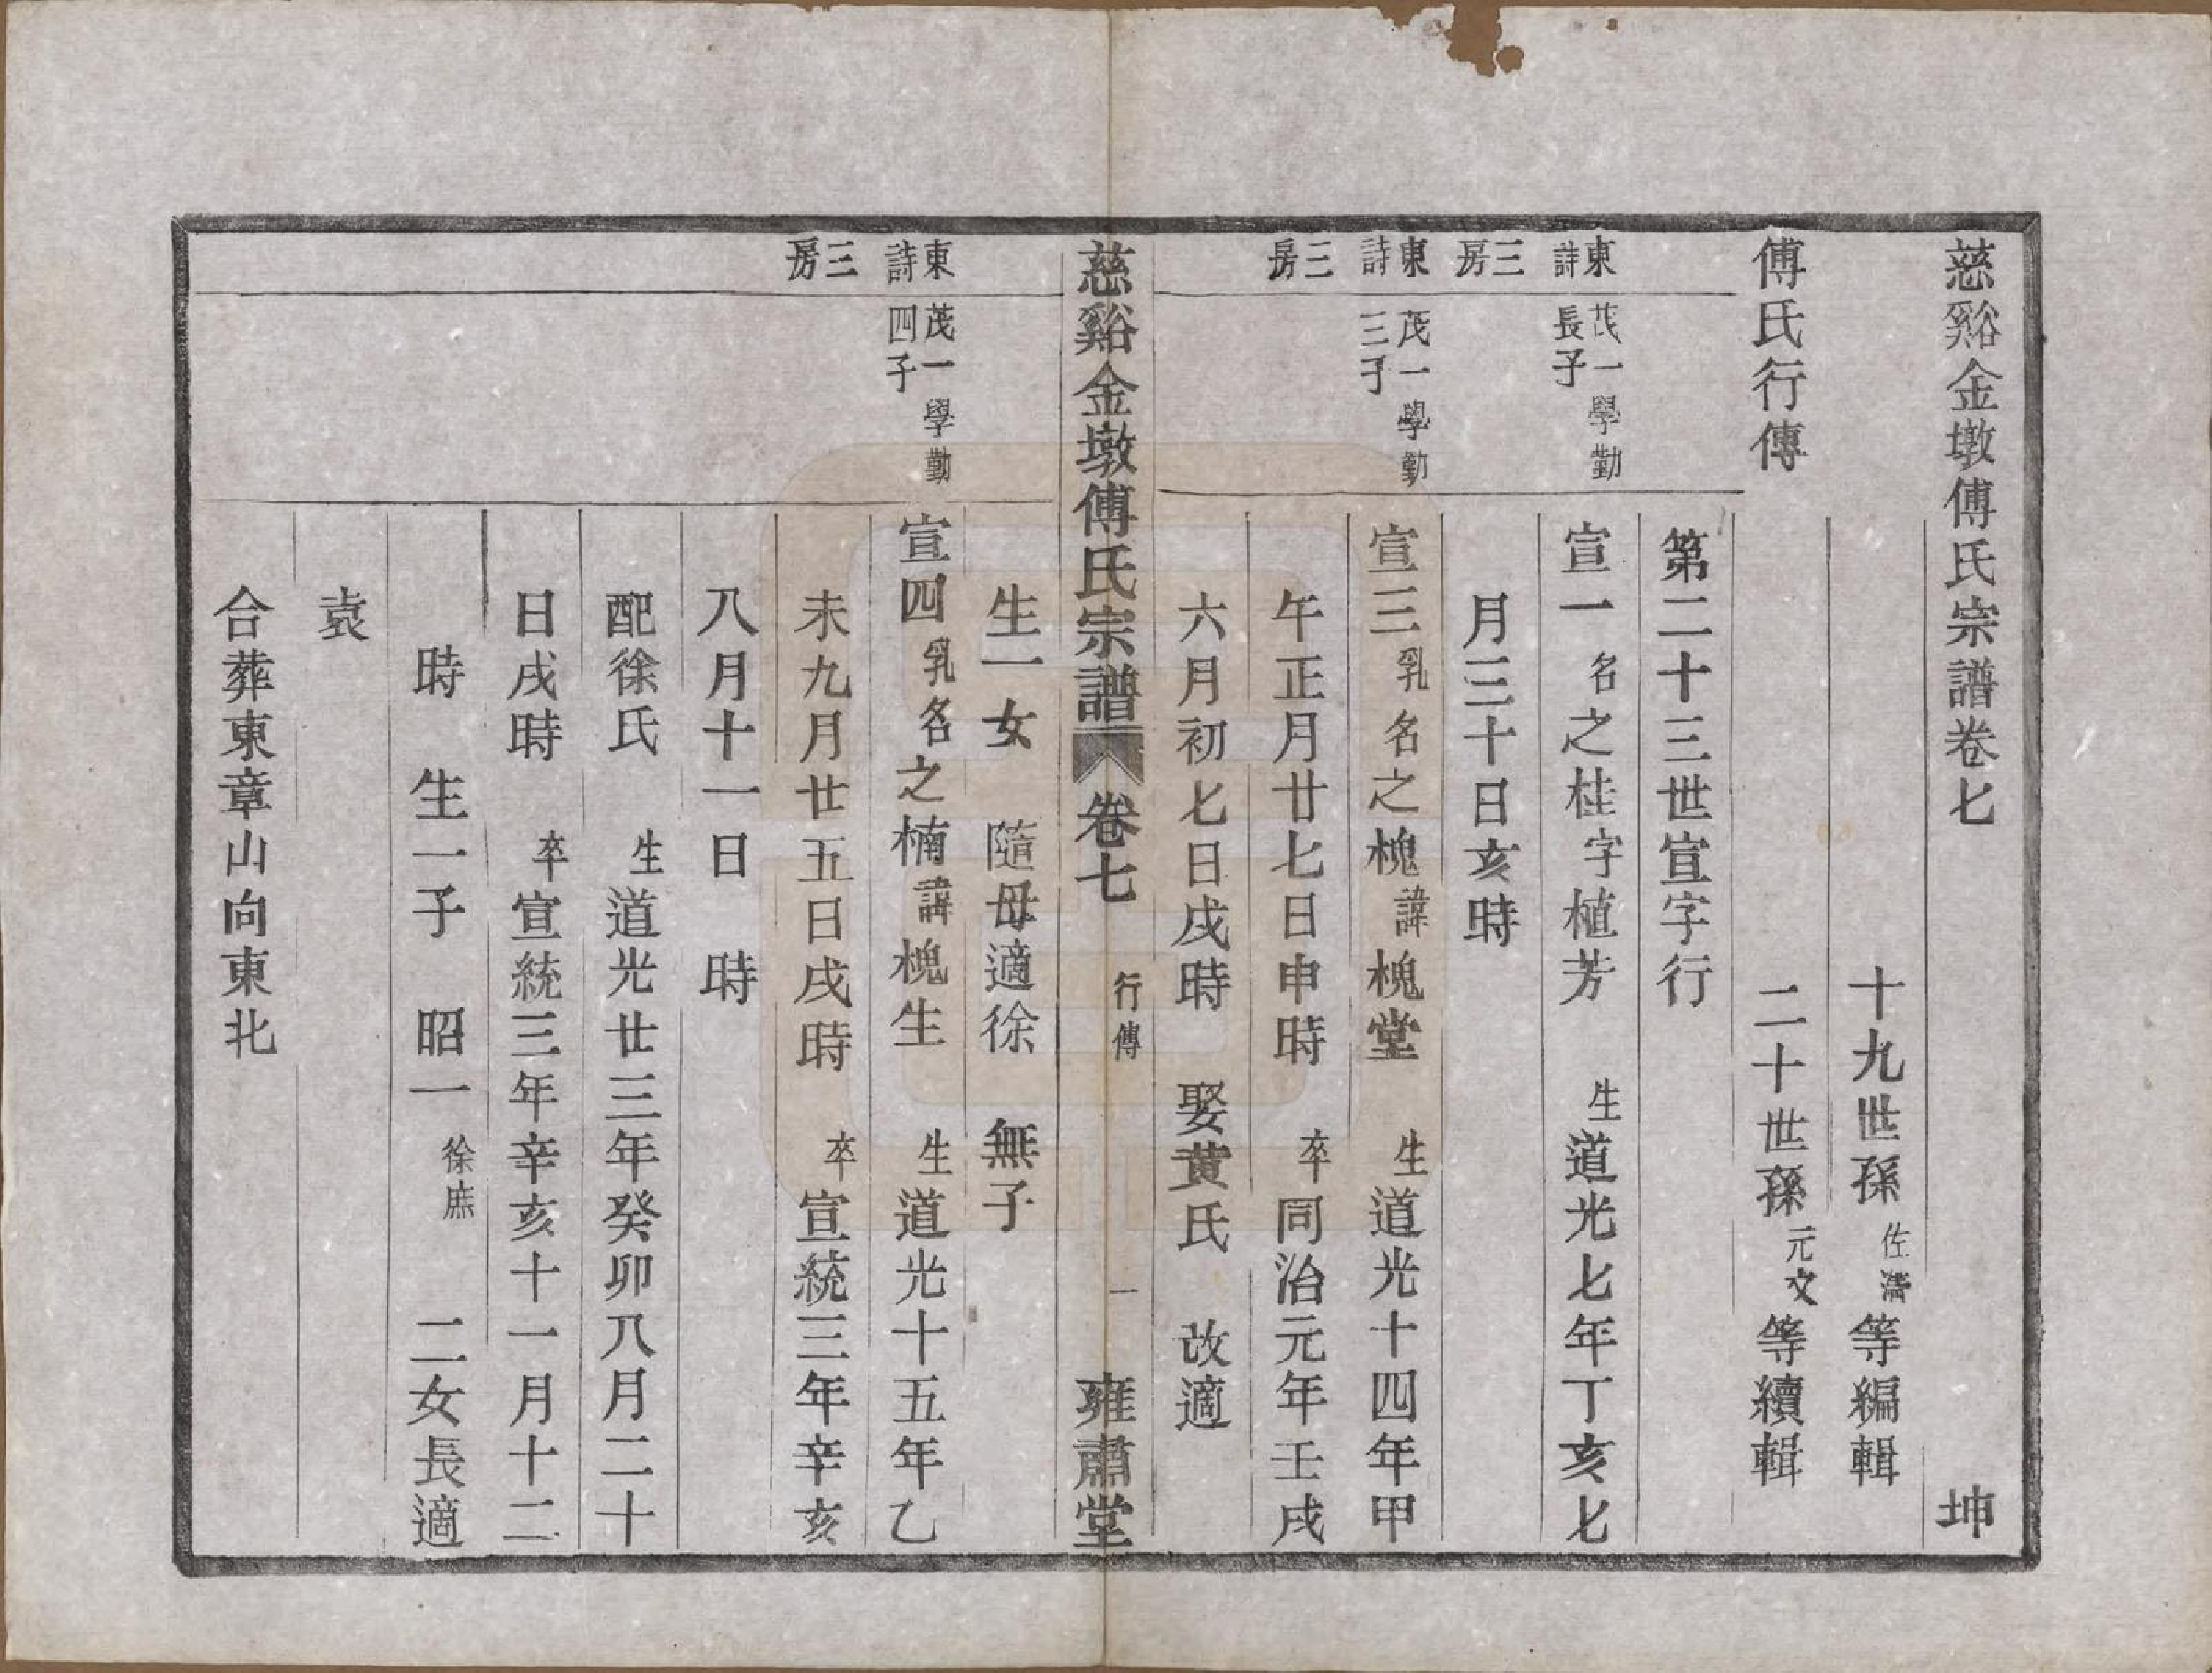 慈谿金墩傅氏宗譜卷七 坤
十九世孫佐濤等編輯
傅氏行傳 二十世孫元文等續輯
第二十三世宣字行
東詩 茂一學勤長子 宣一名之桂字植芳 生道光七年丁亥七
三房 月三十日亥時
東詩 茂一學勤三子 宣三乳名之槐諱槐堂 生道光十四年甲
三房 午正月廿七日申時 卒同治元年壬戌
六月初七日戌時 娶黄氏 改適
慈谿金墩傅氏宗譜 卷七 行傳 一 雍肅堂
生一女 隨母適徐 無子
東詩 茂一學勤四子 宣四乳名之楠諱槐生 生道光十五年乙
三房 未九月廿五日戌時 卒宣統三年辛亥
八月十一日 時
配徐氏 生道光廿三年癸卯八月二十
日戌時 卒宣統三年辛亥十一月十二
時 生一子 昭一徐庶 二女長適
袁
合葬東章山向東北